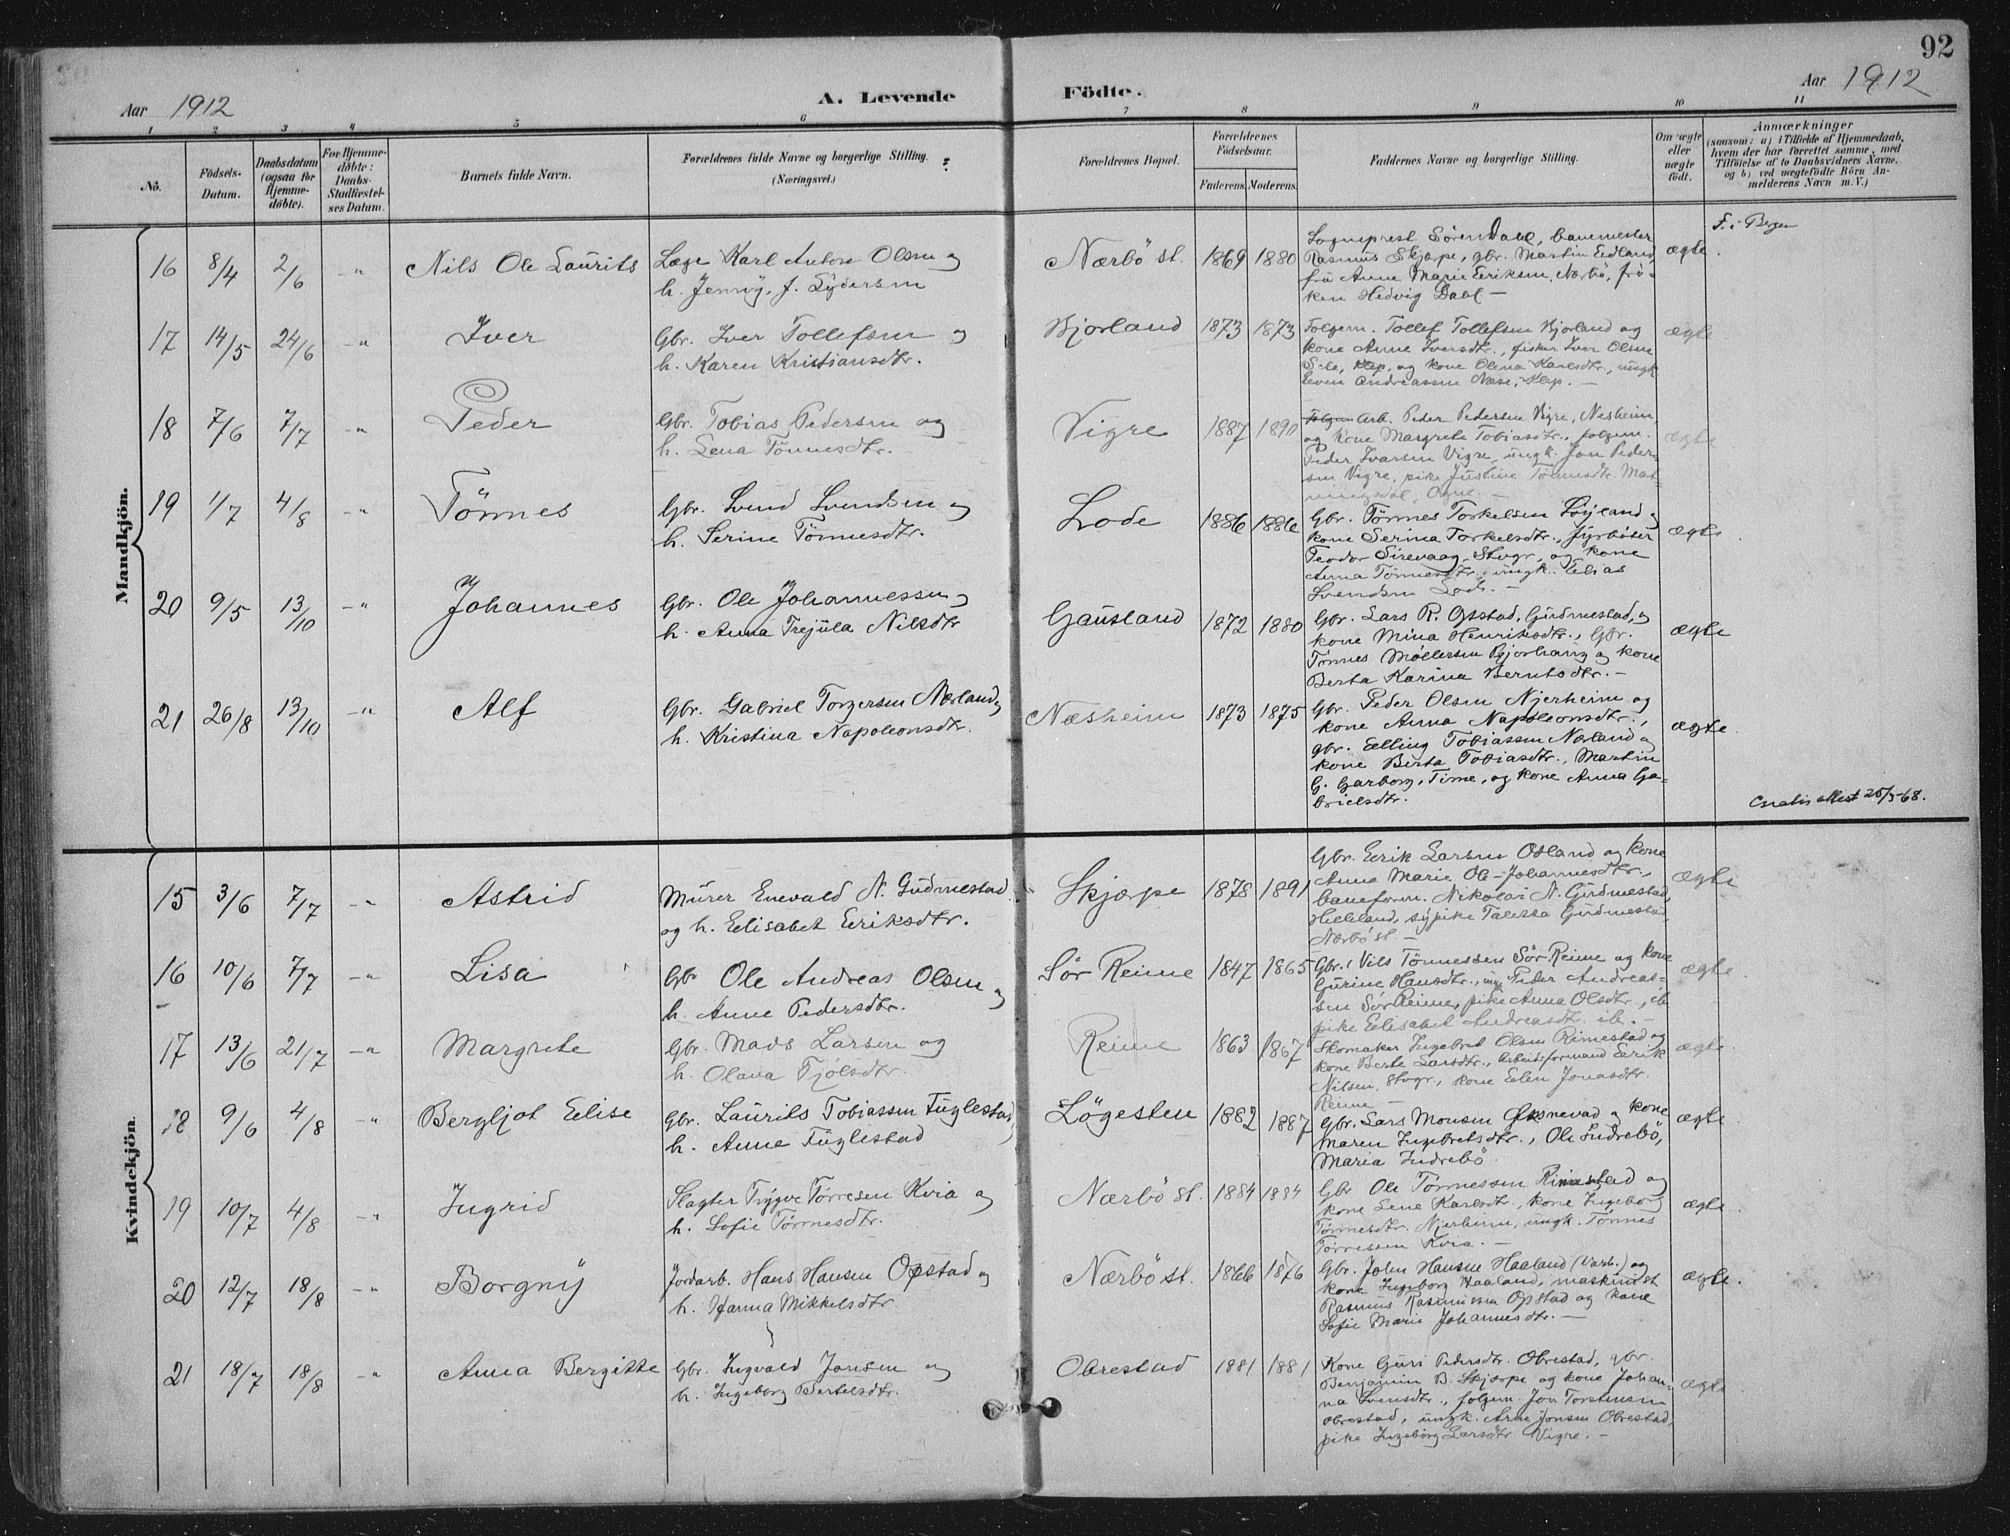 92
Aar 1912
A. Levende
Födte.
Aar 1912
1 2 3 4 5 6 7 8 9 10 11
No.
Födsels-
Datum.
Daabsdatum
(ogsaa for
Hjemme-
döbte).
For Hjemme-
döbte:
Daabs-
Stadfæstel-
ses Datum.
Barnets fulde Navn.
Forældrenes fulde Navne og borgerlige Stilling.
(Næringsvei.)
Forældrenes Bopæl.
Forældrenes
Födselsaar.
Faderens. Moderens.
Faddernes Navne og borgerlige Stilling.
Om ægte
eller
uægte
födt.
Anmærkninger
(saasom: a) i Tilfælde af Hjemmedaab,
hvem der har forrettet samme, med
Tilföielse af to Daabsvidners Navne,
og b) ved uægtefödte Börn An-
melderens Navn m. V.)
Mandkjön.
16 8/4 2/6 -"- Nils Ole Laurits
Læge Karl Anton Olsen og
h. Jenny, f. Sydersen
Nærbö st. 1869 1880
Sogneprest Sören Dahl, banemester
Rasmus Skjæpe, gbr. Martin Eidland,
frü Anne Marie Eeriksen, Nærbö, frö-
ken Hedvig Dahl. -
ægte
F. i Bergen
17 14/5 24/6 -"- Iver
Gbr. Iver Tollefsen og
h. Karen Kristiansdtr.
Hjorland 1873 1873
Folgem. Tollef Tollefsen Hjorland og
kone Anne Iversdtr., fisker Iver Olsen
Sele, Klep, og kone Olena Karlsdtr., ungk.
Even Andreassen Næse, Klep. -
ægte
18 7/6 7/7 -"- Peder
Gbr. Tobias Pedersen og
h. Lena Tönnesdtr.
Vigre 1887 1890
Arb. Peder Pedersen Vigre, Nesheim,
og kone Margrete Tobiasdtr., folgem.
Peder Ivarsen Vigre, ungk. Jon Peder-
sen Vigre, pike Justine Tönnesdtr.
ægte
19 1/7 4/8 -"- Tönnes
Gbr. Svend Svendsen og
h. Serine Tönnesdtr.
Lode 1886 1886
Gbr. Tönnes Torkelsen Löyland og
kone Serina Torkelsdtr., fyrböter
Teodor Sirevaag, Stvgr., og kone
Anna Tönnesdtr., ungk. Elias
Svendsen Lode. -
ægte
20 9/5 13/10 -"- Johannes
Gbr. Ole Johannessen og
h. Anna Trejüla Nilsdtr
Gausland 1872 1880
Gbr. Lars R. Opstad, Gudmestad, og
kone Mina Henriksdtr., Gbr.
Tönnes Möllersen Bjorhaug og kone
Berta Karina Berntsdtr. -
ægte
21 26/8 13/10 -"- Alf
Gbr. Gabriel Torgersen Nærland og
h. Kristina Napoleonsdtr.
Næsheim 1873 1875
Gbr. Peder Olsen Njerheim og
kone Anna Napoleonsdtr.,
gbr. Elling Tobiassen Nærland og
kone Berta Tobiasdtr., Martin
G. Garborg, Time, og kone Anna Ga-
brielsdtr.
ægte
Gratis attest 25/5-68.
Kvindekjön.
15 3/6 7/7 -"- Astrid
Mürer Enevald N. Gudmestad
og h. Eelisabet Eeriksdtr.
Skjæpe 1878 1891
Gbr. Eerik Larsen Odland og kone
Anna Marie Ole-Johannesdtr.,
baneform. Nikolai N. Gudmestad,
Helleland, sypike Talezza Gudmestad
Nærbö st. -
ægte
16 10/6 7/7 -"- Lisa
Gbr Ole Andreas Olsen og
h. Anne Pedersdtr.
Sör Reime 1847 1865
Gbr. Nils Tönnessen Sör Reime og kone
Gurine Hansdtr., ung. Peder Andreas-
sen Sör Reime, pike Anna Olsdtr., ib
pike Eelisabet Andreasdtr. ib. -
ægte
17 13/6 21/7 -"- Margrete
Gbr. Mads Larsen og
h. Olava Tjölsdtr.
Reime 1863 1867
Skomaker Ingebret Olsen Rimestad og
kone Berte Larsdtr., Arbeidsformand Eerik
Nilsen, Stvgr., kone Elen Jonasdtr.
Reime -
ægte
18 9/6 4/8 -"- Bergljot Eelise
Gbr. Laurits Tobiassen Fuglestad
h. Anne Fuglestad
Lögesten 1882 1887
Gbr. Lars Monsen Öksnevad og kone
Maren Ingebretsdtr., Ole Indrebö,
Maria Indrebö.
ægte
19 10/7 4/8 -"- Ingrid
Slagter Trygve Törresen Kvia og
h. Sofie Törresdtr.
Nærbö st. 1884 1884
Gbr Ole Tönnessen Rimestad og
kone Lene Karlsdtr., kone Ingeborg
Tönnesdtr. Njerheim, ungk. Tönnes
Törressen Kvia. -
ægte
20 12/7 18/8 -"- Borgny
Jordarb. Hans Hansen Opstad og
h. Hanna Mikkelsdtr.
Nærbö st. 1866 1876
Gbr. John Hansen Haaland (Varh.) og
kone Ingeborg Haaland, maskinist
Rasmus Rasmussen Opstad og kone
Sofie Marie Johannesdtr. -
ægte.
21 18/7 18/8 -"- Anna Bergitte
Gbr. Ingvald Jonsen og
h. Ingeborg Bertelsdtr.
Obrestad 1881 1881
Kone Guri Pedersdtr. Obrestad, gbr.
Benjamin B. Skjæpe og kone Johan-
na Svensdtr., folgem. Jon Torstensen
Obrestad, ungk. Arne Jonsen Obrestad,
pike Ingeborg Larsdtr Vigre. -
ægte